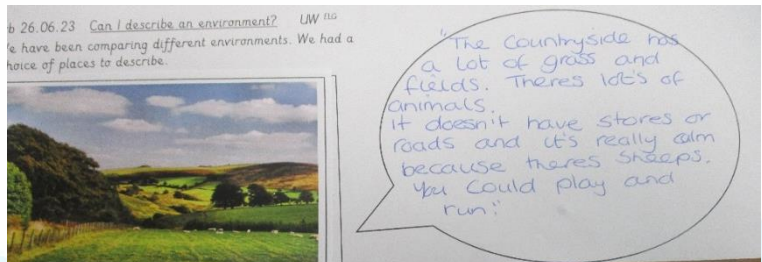 b 26.06.23 Can I describe an environment? UW ELG
e have been comparing different environments. We had a
hoice of places to describe.
"The Countryside has
a lot of grass and
fields. Theres lot's of
animals.
It doesn't have stores or
roads and it's really calm
because theres sheeps.
You could play and
run."